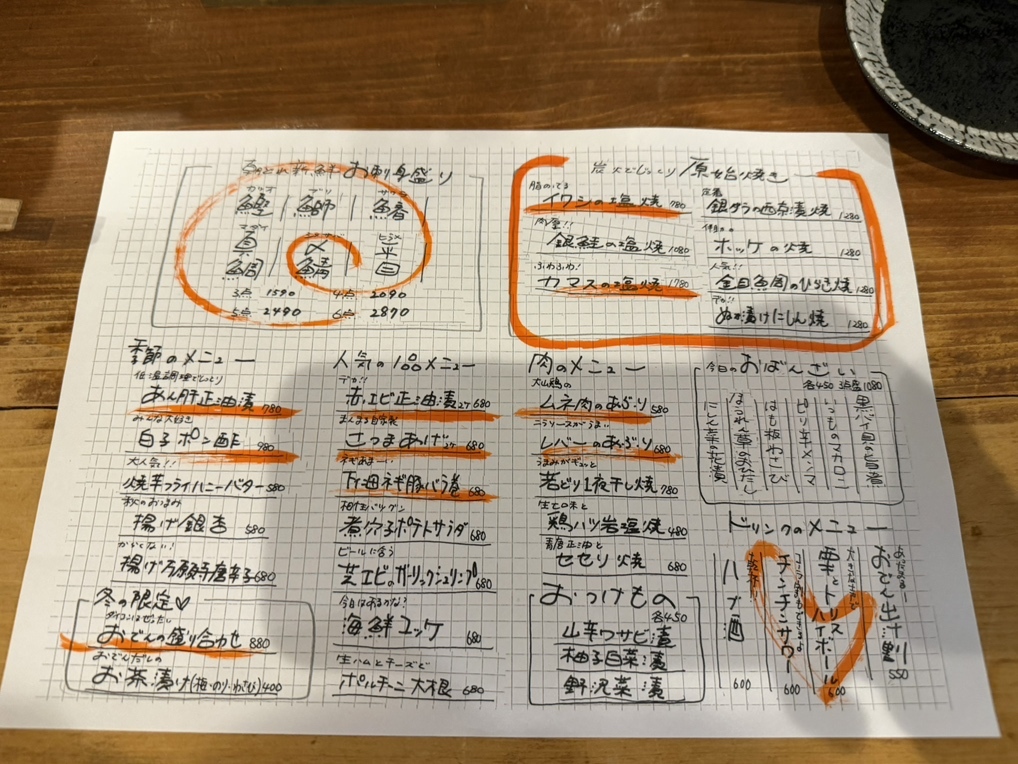 お刺身盛り
カツオ ブリ サワラ
鰹 鰤 鰆
マダイ ヒラメ
真鯛 〆鯖 平目
3点 1590 4点 2090
5点 2490 6点 2870
炭火でじっくり 原始焼き
脂のってる
イワシの塩焼 780
肉厚!!
銀鮭の塩焼 1080
ふわふわ!
カマスの塩焼 1780
定番
銀ダラの西京漬焼 1280
ホッケの焼 1280
人気!!
金目鯛のひらき焼 1280
デカ!!
ぬか漬けにしん焼 1280
季節のメニュー
低温調理でじっくり
あん肝正油漬 780
みんな大好き
白子ポン酢 980
大人気!!
焼芋フライハニーバター 580
秋のおつまみ
揚げ銀杏 580
からくない!
揚げ万願寺唐辛子 680
冬の限定♡
ダイコンはぜったい
おでんの盛り合わせ 880
おでんだしの
お茶漬け(梅・のり・わさび) 400
人気の1品メニュー
デカ!!
赤エビ正油漬 2ケ 680
まんまる自家製
さつまあげ 680
ネギあま〜い
下仁田ネギ豚バラ巻 680
相性バツグン
煮穴子ポテトサラダ 680
ビールに合う
芝エビのガーリックシュリンプ 680
今日はあるかな?
海鮮ユッケ 680
生ハムとチーズと
ポルチーニ大根 680
肉のメニュー
大山鶏の
ムネ肉のあぶり 580
ニラソースがうまい
レバーのあぶり 680
うまみがギュッと
若どり1夜干し焼 780
生で食べる味と
鶏ハツ岩塩焼 480
青唐正油と
セセリ焼 680
おつけもの
各450
山辛ワサビ漬
柚子白菜漬
野沢菜漬
今日のおばんざい
各450 3点盛1080
黒バイ貝の旨漬
いつものマカロニ
ピリ辛メンマ
はも板わさび
ほうれん草のおひたし
こしん菜の花漬
ドリンクのメニュー
おでん出汁割 550
栗とトリスハイボール 600
チンチンサワー 600
乾杯!
ハブ酒 600